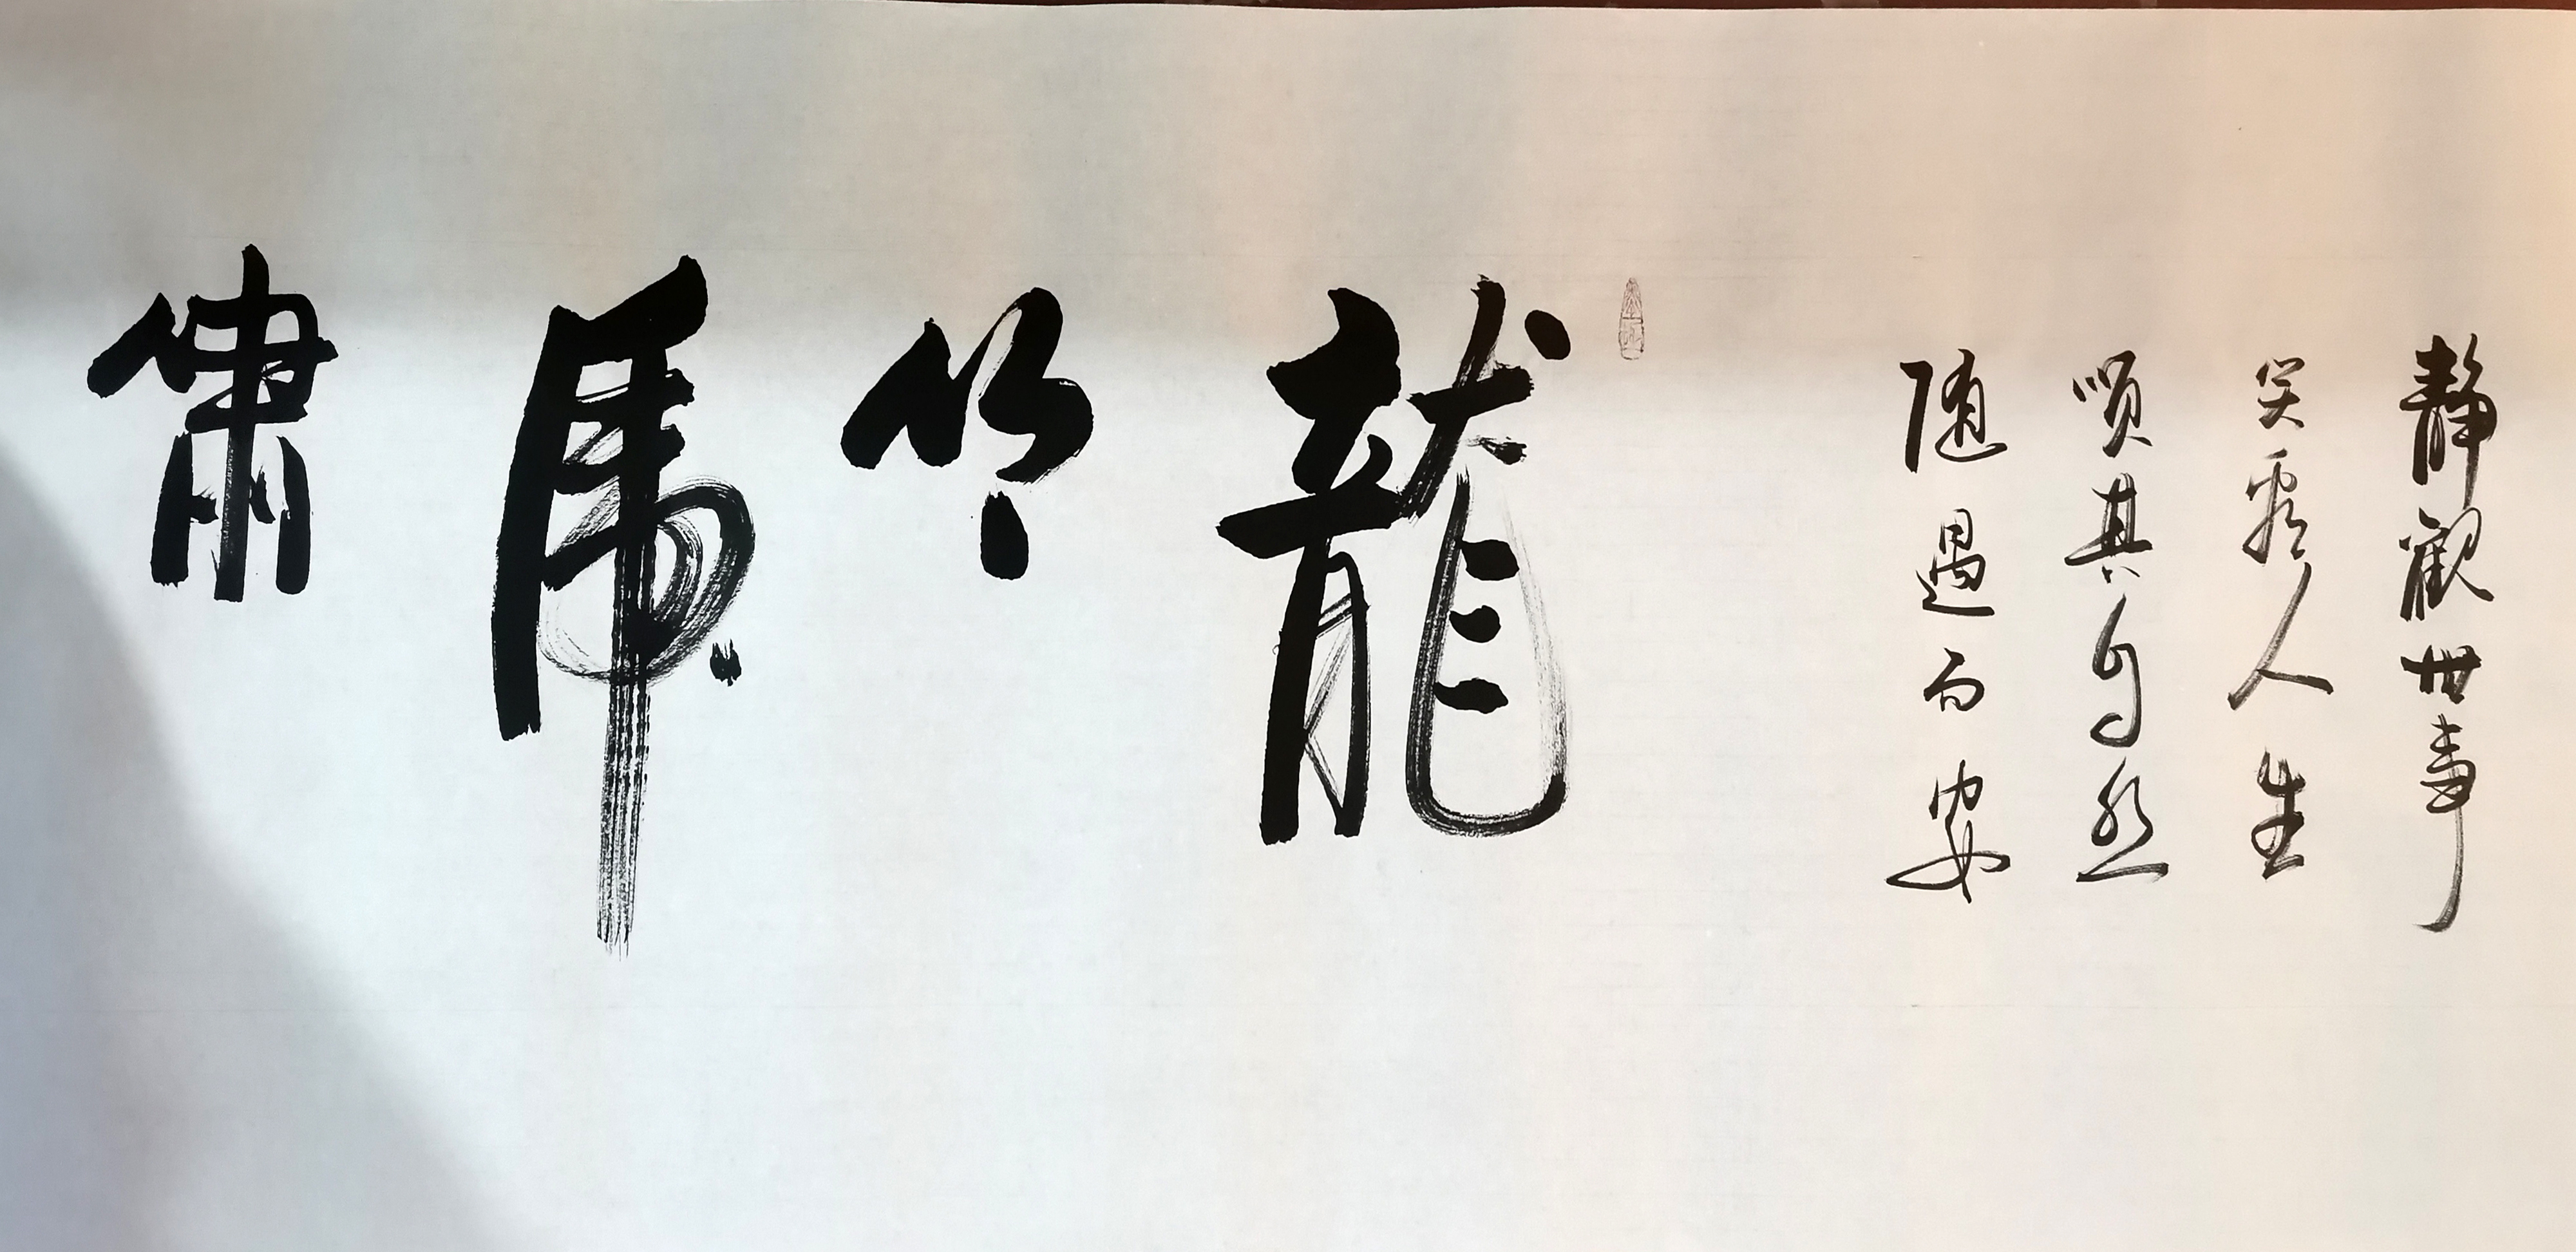 静觀世事
笑看人生
順其自然
随遇而安
龍吟虎嘯